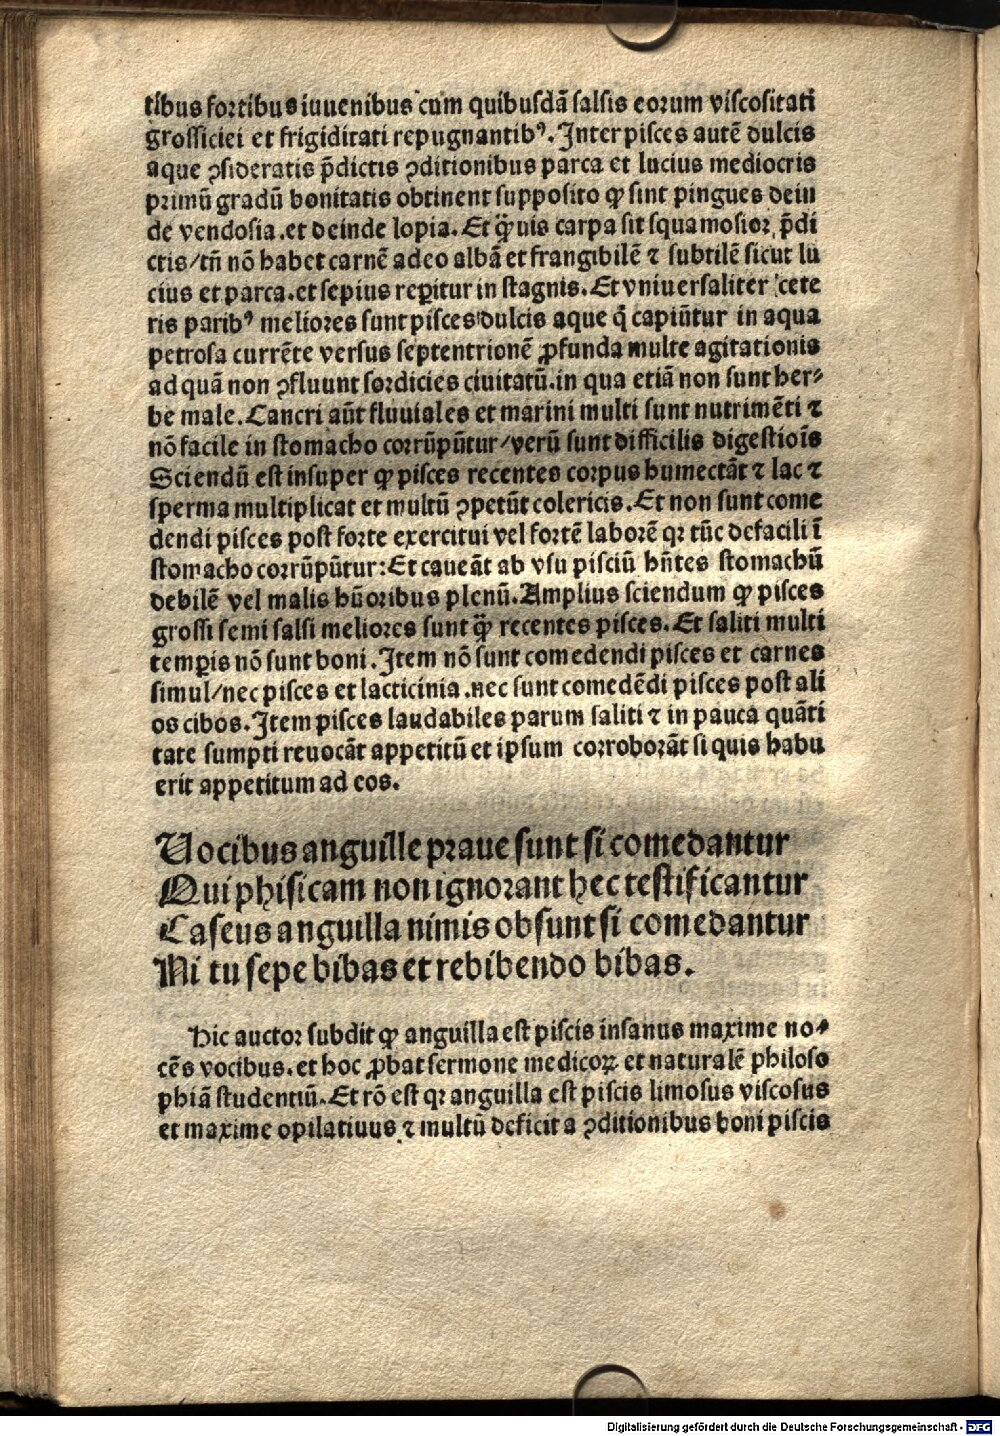 tibus fortibus iuuenibus cum quibusdā salsis eorum viscositati
grossiciei et frigiditati repugnantibꝰ. Inter pisces autē dulcis
aque ꝯsideratis p̄dictis ꝯditionibus parca et lucius mediocris
primū gradū bonitatis obtinent supposito ꝙ sint pingues dein
de vendosia.et deinde lopia. Et q̄uis carpa sit squamosior p̄di
ctis/tn̄ nō habet carnē adeo albā et frangibilē ⁊ subtilē sicut lu
cius et parca.et sepius reꝑitur in stagnis. Et vniuersaliter cete
ris paribꝰ meliores sunt pisces dulcis aque q̄ capiūtur in aqua
petrosa currēte versus septentrionē ꝓfunda multe agitationis
ad quā non ꝯfluunt sordicies ciuitatū.in qua etiā non sunt her⸗
be male. Cancri aūt fluuiales et marini multi sunt nutrimēti ⁊
nō facile in stomacho corrūpūtur/verū sunt difficilis digestiōis
Sciendū est insuper ꝙ pisces recentes corpus humectāt ⁊ lac ⁊
sperma multiplicat et multū ꝯpetūt colericis. Et non sunt come
dendi pisces post forte exercitui vel fortē laborē qꝛ tūc defacili ī
stomacho corrūpūtur: Et caueāt ab vsu pisciū hn̄tes stomachū
debilē vel malis hūoribus plenū. Amplius sciendum ꝙ pisces
grossi semi salsi meliores sunt q̄ recentes pisces. Et saliti multi
temꝑis nō sunt boni. Item nō sunt comedendi pisces et carnes
simul/nec pisces et lacticinia.nec sunt comedēdi pisces post ali
os cibos. Item pisces laudabiles parum saliti ⁊ in pauca quāti
tate sumpti reuocāt appetitū et ipsum corroborāt si quis habu
erit appetitum ad eos.
Vocibus anguille praue sunt si comedantur
Qui phisicam non ignorant hec testificantur
Caseus anguilla nimis obsunt si comedantur
Ni tu sepe bibas et rebibendo bibas.
Hic auctor subdit ꝙ anguilla est piscis insanus maxime no⸗
cēs vocibus.et hoc ꝓbat sermone medicoꝝ et naturalē philoso
phiā studentiū. Et rō est qꝛ anguilla est piscis limosus viscosus
et maxime opilatiuus ⁊ multū deficit a ꝯditionibus boni piscis
Digitalisierung gefördert durch die Deutsche Forschungsgemeinschaft - DFG